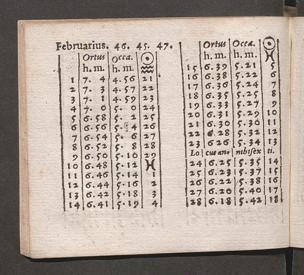 Februarius. 46. 45. 47.
Ortus Occa. ☉
h. m. h. m. ♒
1 7. 4 4.56 21
2 7. 3 4.57 22
3 7. 1 4.59 23
4 7. 0 5. 0 24
5 6.58 5. 2 25
6 6.56 5. 4 26
7 6.54 5. 6 27
8 6.52 5. 8 28
9 6.50 5.10 29
10 6.48 5.12 ♓
11 6.46 5.14 1
12 6.44 5.16 2
13 6.42 5.18 3
14 6.41 5.19 4
Ortus Occa. ☉
h. m. h. m. ♓
15 6.39 5.21 5
16 6.38 5.22 6
17 6.36 5.24 7
18 6.34 5.26 8
19 6.33 5.27 9
20 6.31 5.29 10
21 6.30 5.30 11
22 6.28 5.32 12
23 6.26 5.34 13
Lo cus an nibisex ti.
24 6.25 5.35 14
25 6.23 5.37 15
26 6.22 5.38 16
27 6.20 5.40 17
28 6.18 5.42 18